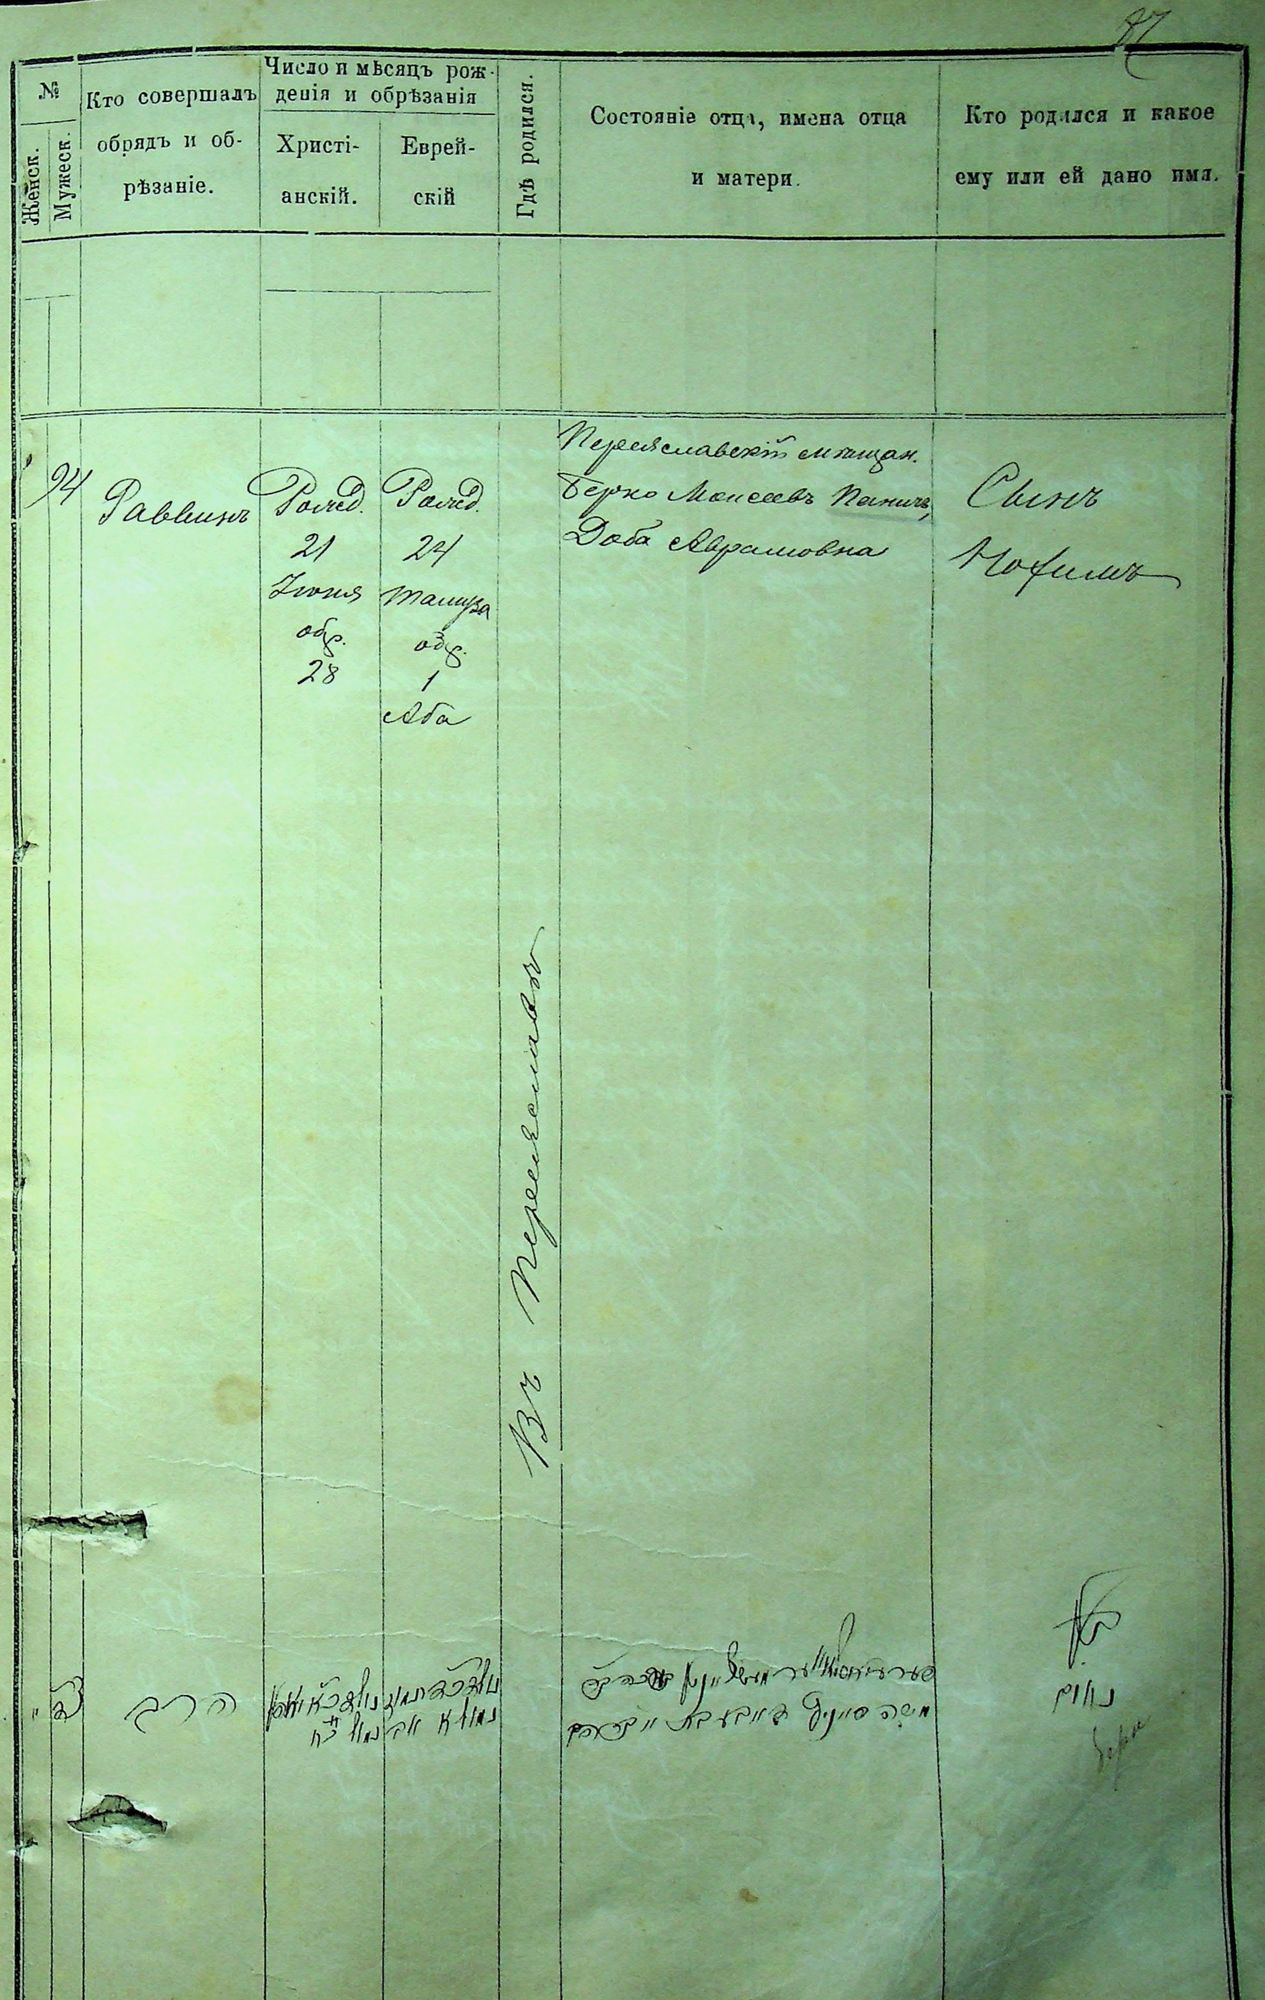 87
№
Женск.
Мужеск.
Кто совершалъ
обрядъ и об-
рѣзаніе.
Число и мѣсяцъ рож-
денія и обрѣзанія
Христі-
анскій.
Еврей-
скій
Гдѣ родился.
Состояніе отца, имена отца
и матери.
Кто родился и какое
ему или ей дано имя.
94
Раввинъ
Рожд.
21
Іюня
обр.
28
Рожд.
24
Тамуза
обр.
1
Аба
Въ Переяславѣ
Переяславскій мѣщан.
Берко Моисеевъ Паничъ,
Доба Аврамовна
Сынъ
Нохимъ
צד
הרב
משה
נחום